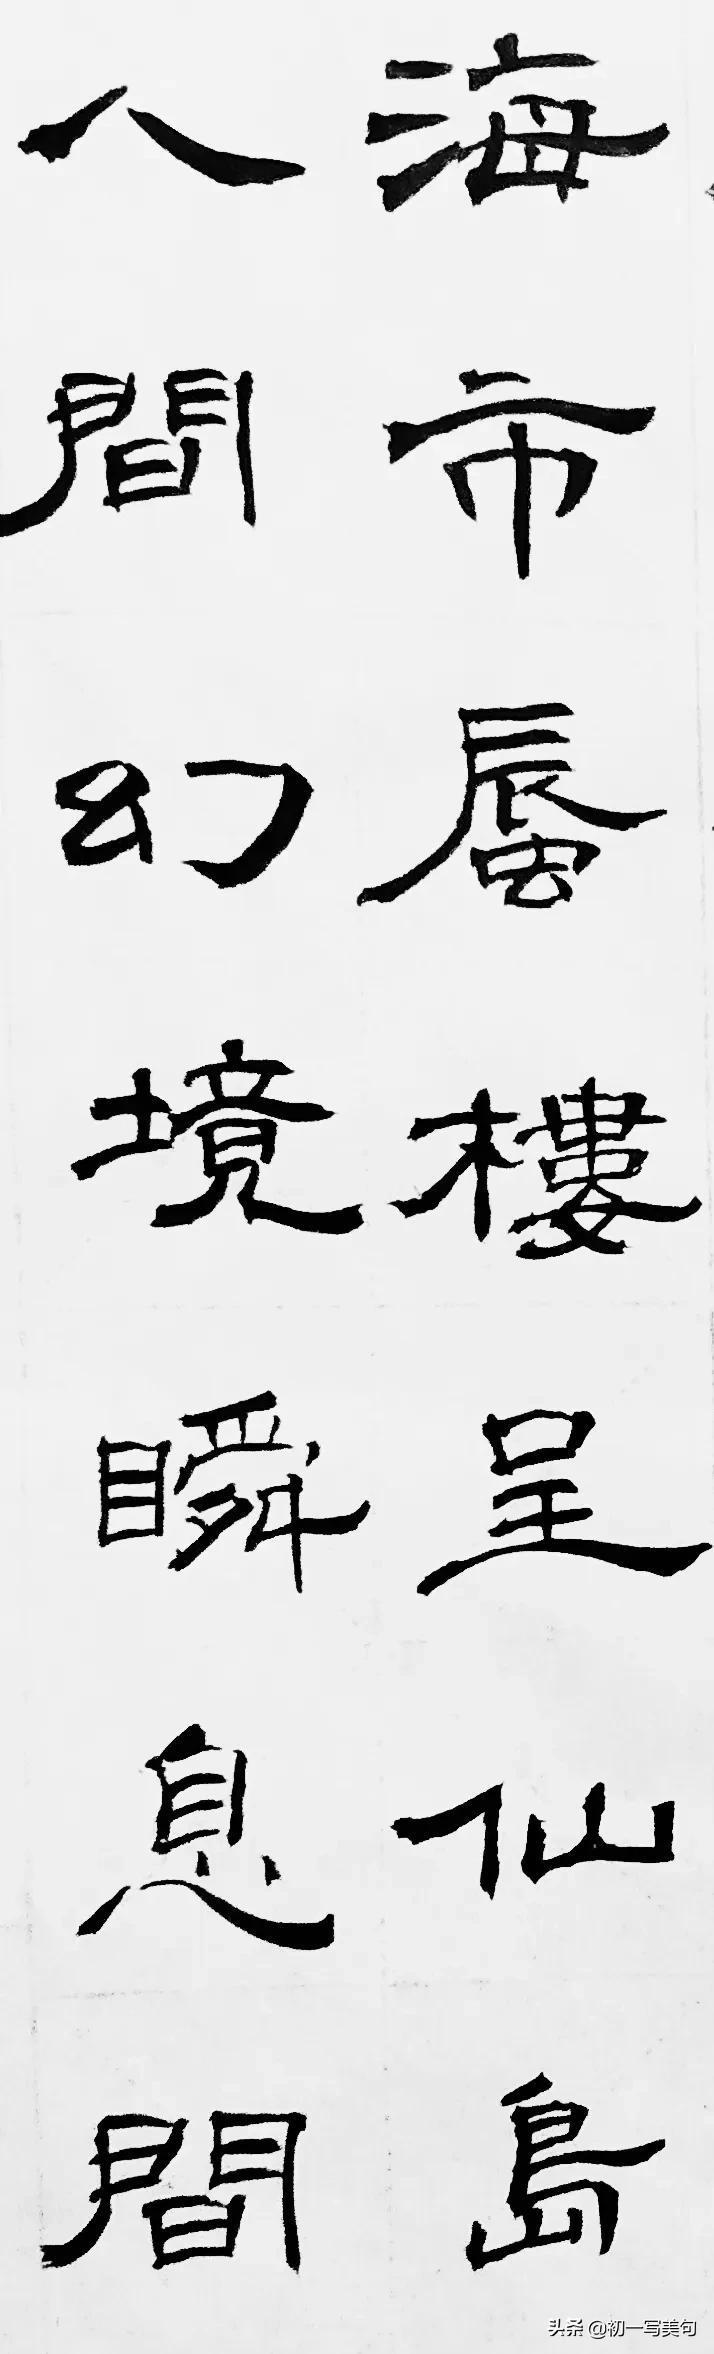 海市蜃樓呈仙島
人間幻境瞬息間
头条 @初一写美句